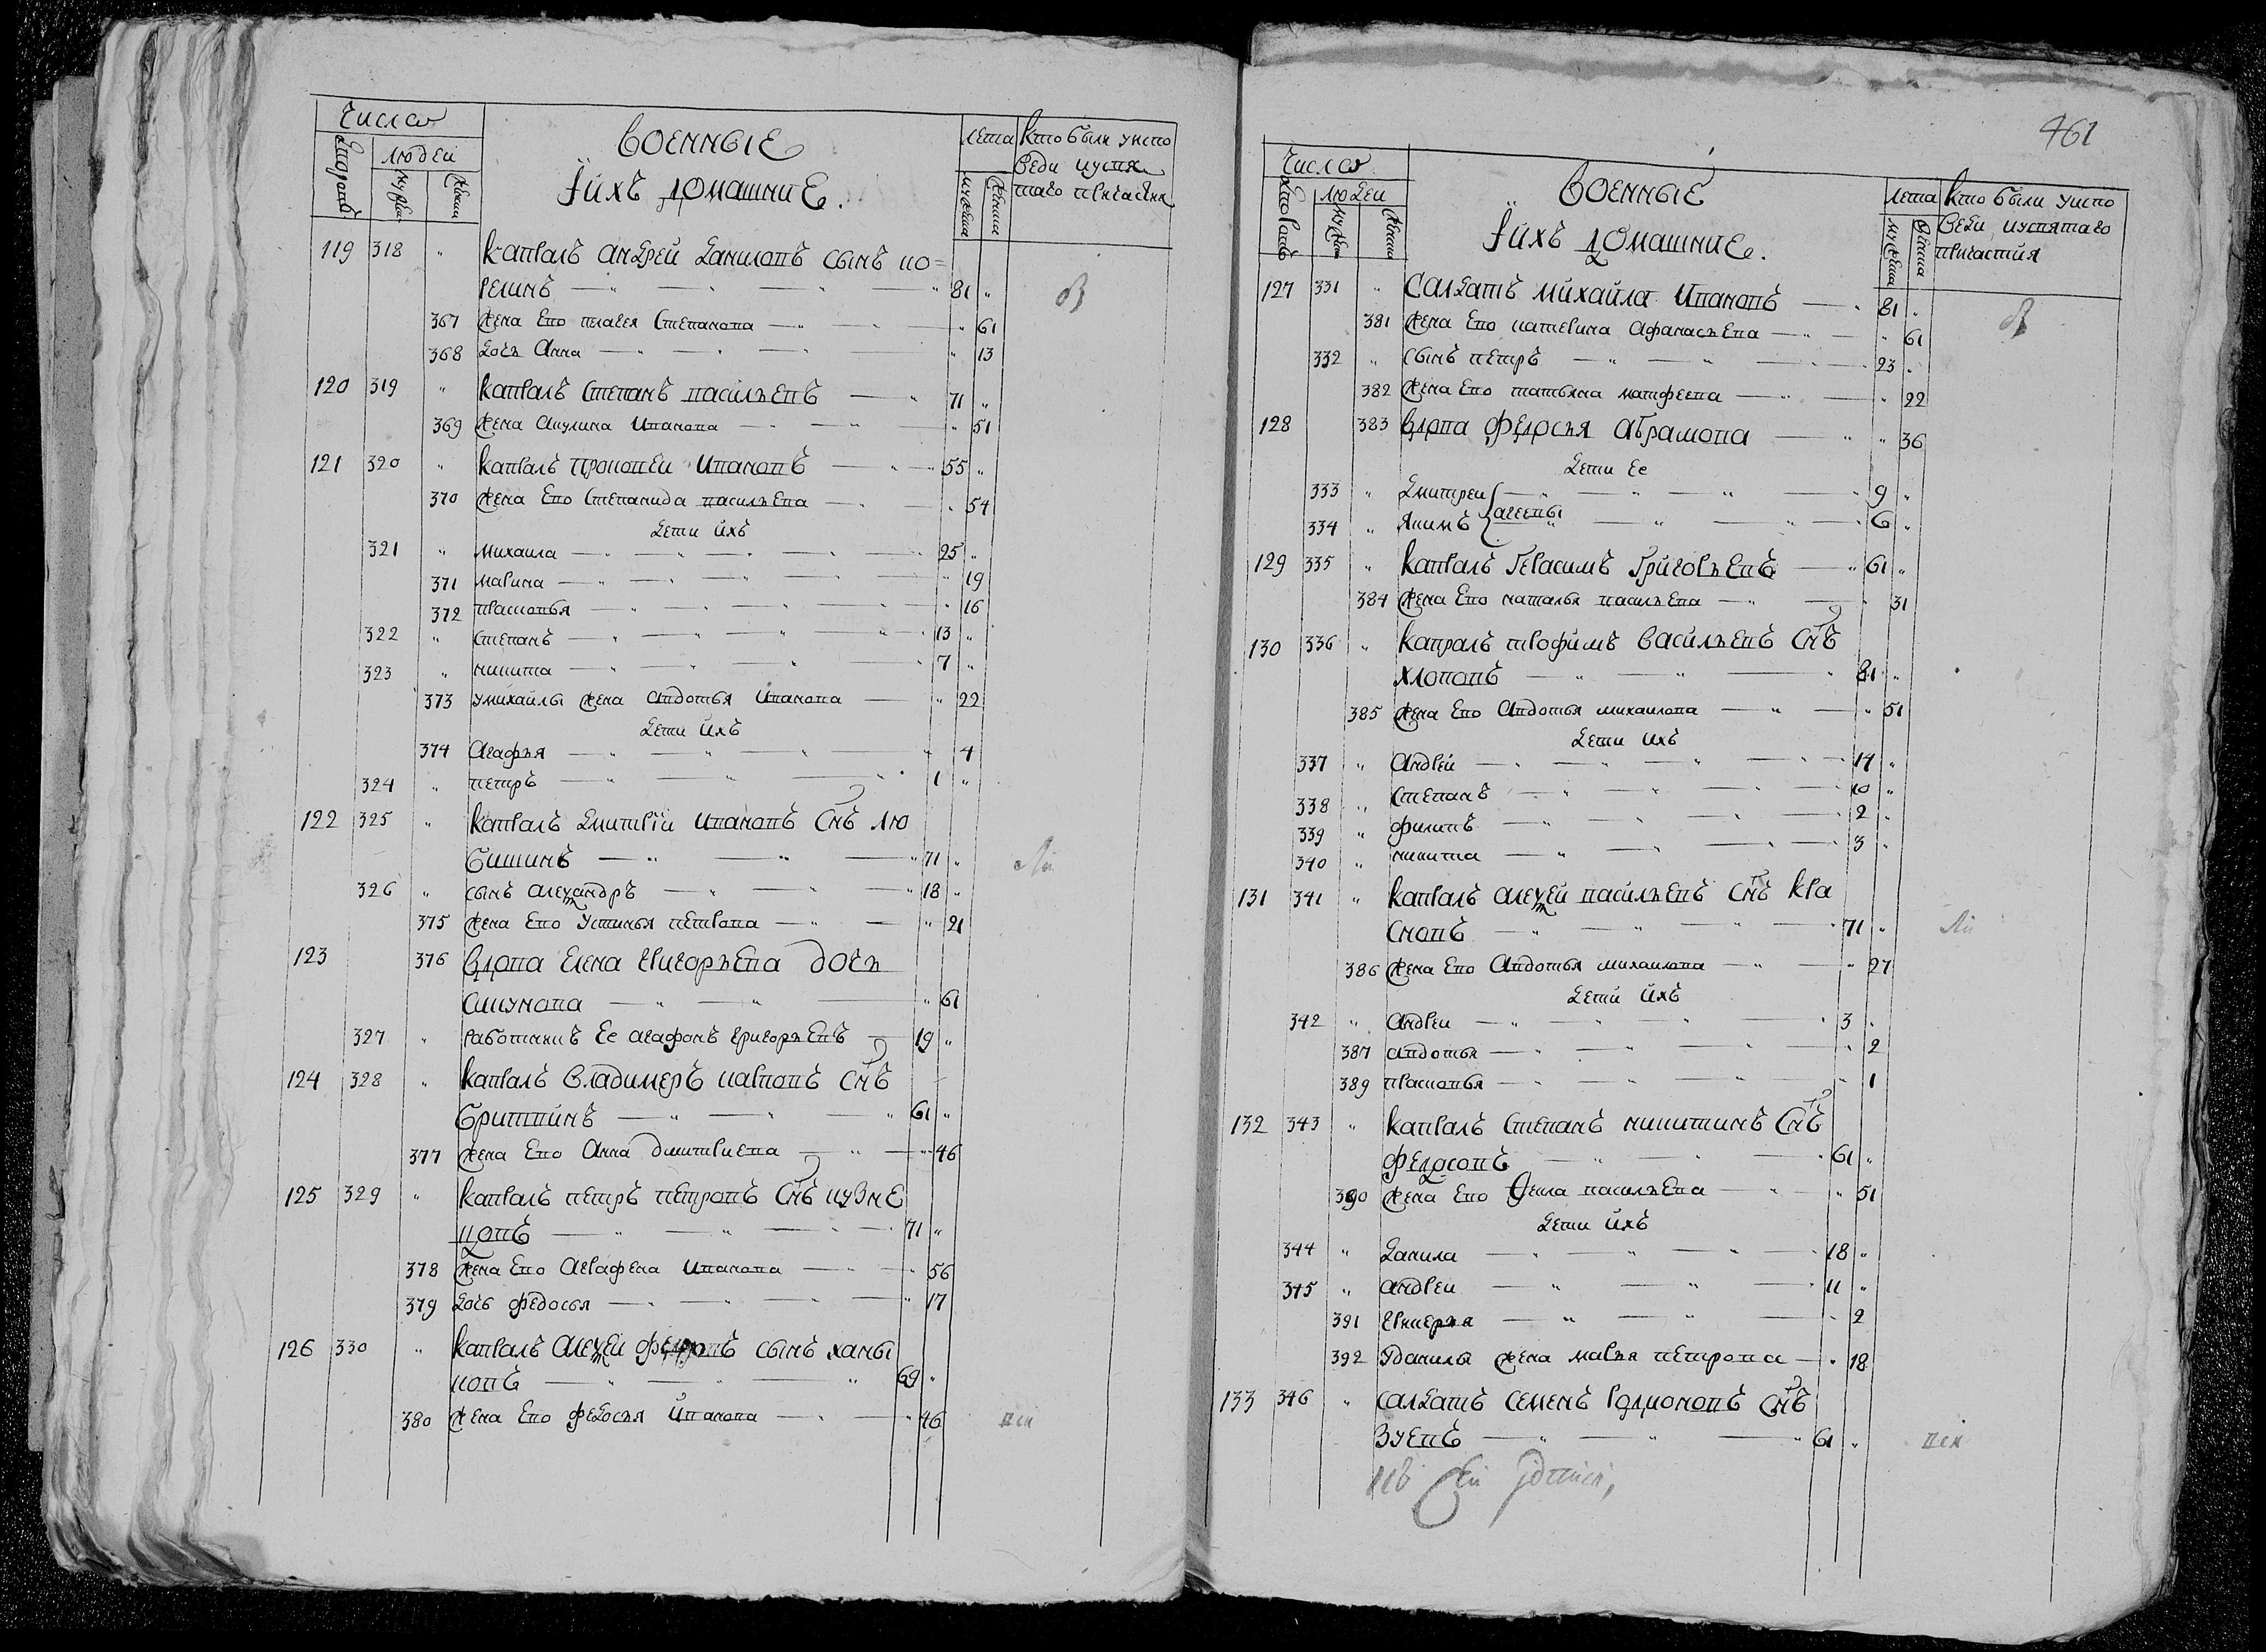 Число
дворовъ
людей
мужеска
женска
Военные
И ихъ домашние.
лета
мужеска
женска
Кто были у испо
веди и свя
таго причастия
119 318 " капралъ андрей даниловъ сынъ ко=
релинъ — " — " — " — " 81 "
367 жена Ево пелагея Степанова — " — " — " 61
368 дочь Анна — " — " — " — " 13
120 319 " капралъ Степанъ василъевъ — " 71 "
369 жена акулина Иванова — " — " — " 51
121 320 " капралъ прокопеи Ивановъ — " — 55 "
370 жена Ево Степанида василъева — " — " 54
дети ихъ
321 " михаила — " — " — " — " — 25 "
371 марина — " — " — " — " — " 19
372 прасковья — " — " — " — " — " 16
322 " степанъ — " — " — " — " 13 "
323 " никита — " — " — " — " 7 "
373 у михайлы жена авдотья Иванова — " 22
дети ихъ
374 агафъя — " — " — " — " 4
324 " петръ — " — " — " 1 "
122 325 " капралъ дмитрий ивановъ снъ лю
бишинъ — " — " — " 71 "
326 " сынъ александръ — " — " — " 18 "
375 жена Ево устинья петрова — " — " 21
123 376 вдова елена григоръева дочь
окунова — " — " — " 61
327 " работникъ ее агафонъ григоръевъ — 19 "
124 328 " капралъ владимеръ карповъ снъ
бриттинъ — " — " — " 61 "
377 жена Ево анна дмитриева — " — " 46
125 329 " капралъ петръ петровъ снъ кузне
цовъ — " — " — " — 71 "
378 жена Ево аграфена иванова — " — " 56
379 дочь федосья — " — " — " 17
126 330 " капралъ алексеи федоровъ сынъ ханы
ковъ — " — " — " 69 "
380 жена Ево федосъя иванова — " — " 46
461
Число
дворовъ
людеи
мужеска
женска
Военные
И ихъ домашние.
лета
мужеска
женска
Кто были у испо
веди и святаго
причастия
127 331 " Салдатъ михайла Ивановъ — " 81 "
381 жена Ево катерина афанасъева — " — " 61
332 " сынъ петръ — " — " — " 23 "
382 жена Ево татьяна матфеева — " — " 22
128 383 вдова федосъя абрамова — " " 36
дети ее
333 " дмитреи — " — " — " — " 9 "
агеевы
334 " якимъ — " — " — " — 6 "
129 335 " капралъ герасимъ григоръевъ — " 61 "
384 жена Ево наталья василъева — " — " 31
130 336 " капралъ трофимъ васильевъ снъ
хлоповъ — " — " — " 81 "
385 жена Ево авдотья михаилова — " — " 51
дети ихъ
337 " андрей — " — " — " — " 14 "
338 " степанъ — " — " — " — 10 "
339 " филипъ — " — " — " — " 2 "
340 " никита — " — " — " — 3 "
131 341 " капралъ алексей василъевъ снъ кра
сновъ — " — " — " — " 71 "
386 жена Ево авдотья михаилова — " — " 27
дети ихъ
342 " андреи — " — " — " — " 3 "
387 авдотья — " — " — " — " 2
389 прасковья — " — " — " — " 1
132 343 " капралъ степанъ никитинъ снъ
федосовъ — " — " — " 61 "
390 жена Ево фекла василъева — " — " 51
дети ихъ
344 " данила — " — " — " — " 18 "
345 " андреи — " — " — " 11 "
391 — " — " — " 2
392 у данилы жена маръя петрова — " 18
133 346 " салдатъ семенъ родионовъ снъ
зуевъ — " — " — " 61 "